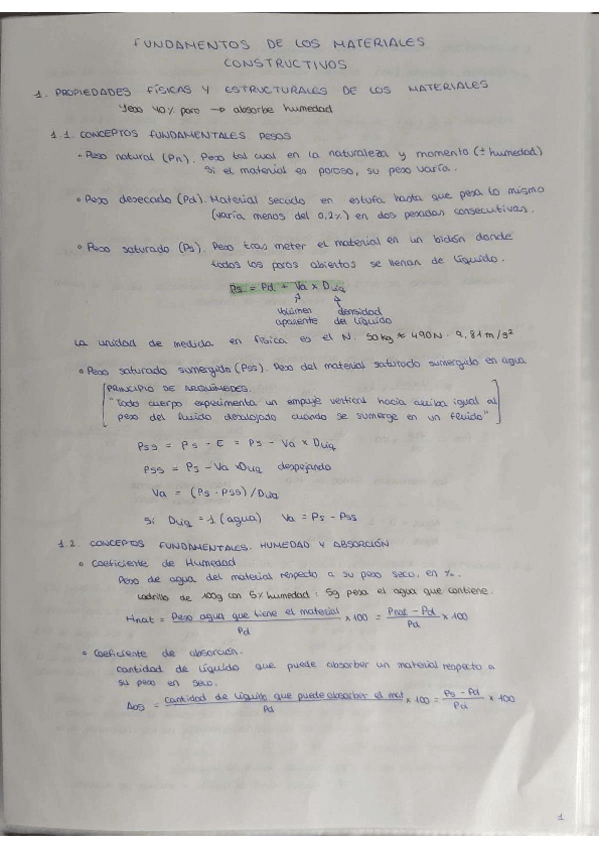 FUNDAMENTOS DE LOS MATERIALES
CONSTRUCTIVOS
1. PROPIEDADES FÍSICAS Y ESTRUCTURALES DE LOS MATERIALES
Yeso 40% poro → absorbe humedad
1.1. CONCEPTOS FUNDAMENTALES PESOS
• Peso natural (Pn). Peso tal cual en la naturaleza y momento (± humedad)
Si el material es poroso, su peso varía.
• Peso desecado (Pd). Material secado en estufa hasta que pesa lo mismo
(varía menos del 0,2%) en dos pesadas consecutivas.
• Peso saturado (Ps). Peso tras meter el material en un bidón donde
todos los poros abiertos se llenan de líquido.
Ps = Pd + Va x Dliq
volumen densidad
aparente del líquido
La unidad de medida en física es el N. 50kg ≈ 490N · 9,81m/s²
• Peso saturado sumergido (Pss). Peso del material saturado sumergido en agua
PRINCIPIO DE ARQUÍMEDES.
"Todo cuerpo experimenta un empuje vertical hacia arriba igual al
peso del fluido desalojado cuando se sumerge en un fluido"
Pss = Ps - E = Ps - Va x Dliq
Pss = Ps - Va x Dliq despejando
Va = (Ps - Pss) / Dliq
Si Dliq = 1 (agua) Va = Ps - Pss
1.2. CONCEPTOS FUNDAMENTALES. HUMEDAD Y ABSORCIÓN
• Coeficiente de Humedad
Peso de agua del material respecto a su peso seco, en %.
Ladrillo de 100g con 5% humedad: 5g pesa el agua que contiene.
Hnat = Peso agua que tiene el material / Pd x 100 = Pnat - Pd / Pd x 100
• Coeficiente de absorción.
Cantidad de líquido que puede absorber un material respecto a
su peso en seco.
= Cantidad de líquido que puede absorber el mat / Pd x 100 = Ps - Pd / Pd x 100
1